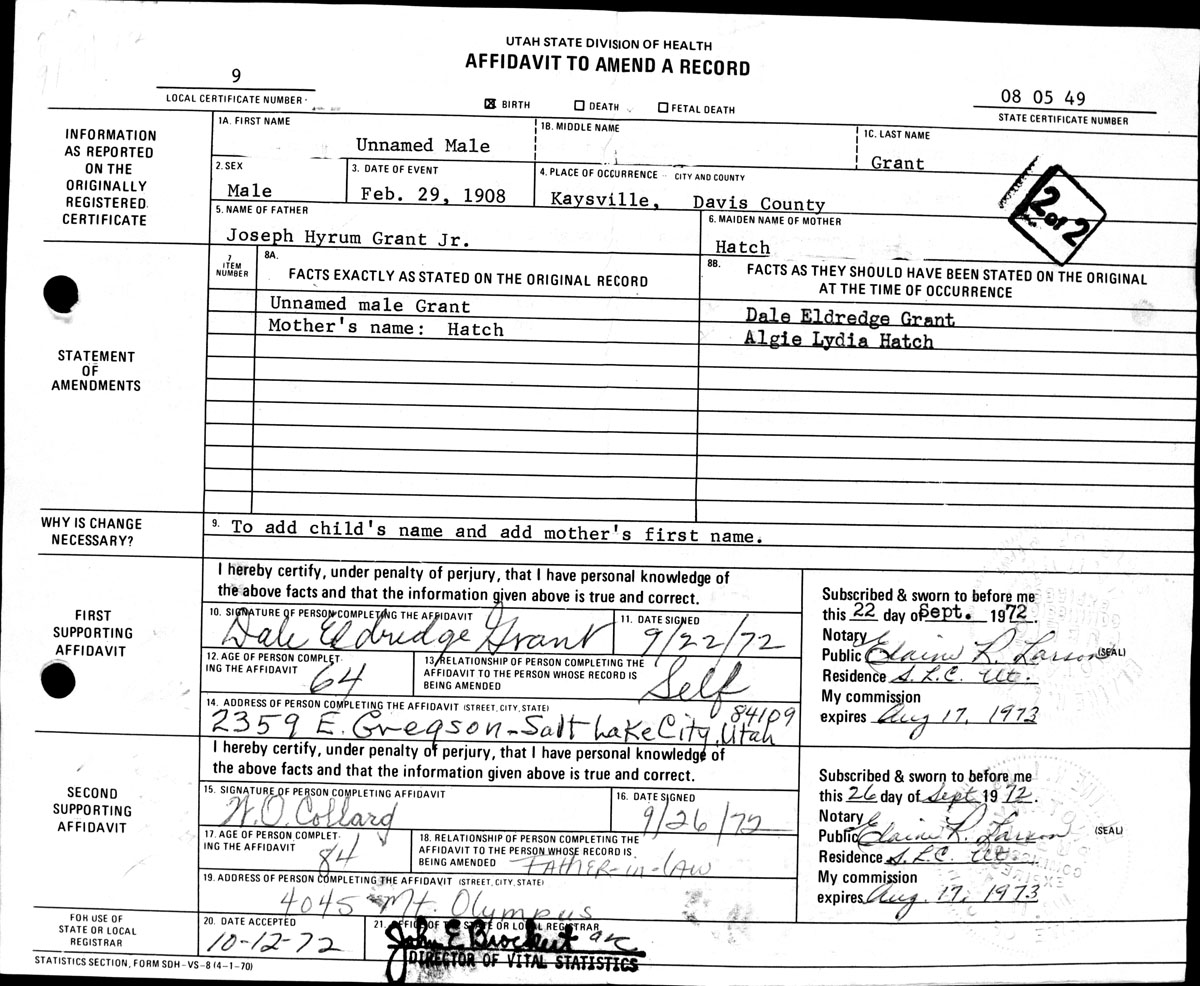 UTAH STATE DIVISION OF HEALTH
AFFIDAVIT TO AMEND A RECORD
9
LOCAL CERTIFICATE NUMBER
☒ BIRTH ☐ DEATH ☐ FETAL DEATH
08 05 49
STATE CERTIFICATE NUMBER
INFORMATION
AS REPORTED
ON THE
ORIGINALLY
REGISTERED
CERTIFICATE
1A. FIRST NAME
Unnamed Male
1B. MIDDLE NAME
1C. LAST NAME
Grant
2. SEX
Male
3. DATE OF EVENT
Feb. 29, 1908
4. PLACE OF OCCURRENCE CITY AND COUNTY
Kaysville, Davis County
2 of 2
5. NAME OF FATHER
Joseph Hyrum Grant Jr.
6. MAIDEN NAME OF MOTHER
Hatch
STATEMENT
OF
AMENDMENTS
7
ITEM
NUMBER
8A.
FACTS EXACTLY AS STATED ON THE ORIGINAL RECORD
8B.
FACTS AS THEY SHOULD HAVE BEEN STATED ON THE ORIGINAL
AT THE TIME OF OCCURRENCE
Unnamed male Grant
Dale Eldredge Grant
Mother's name: Hatch
Algie Lydia Hatch
WHY IS CHANGE
NECESSARY?
9. To add child's name and add mother's first name.
FIRST
SUPPORTING
AFFIDAVIT
I hereby certify, under penalty of perjury, that I have personal knowledge of
the above facts and that the information given above is true and correct.
10. SIGNATURE OF PERSON COMPLETING THE AFFIDAVIT
Dale Eldredge Grant
11. DATE SIGNED
9/22/72
12. AGE OF PERSON COMPLET-
ING THE AFFIDAVIT
64
13. RELATIONSHIP OF PERSON COMPLETING THE
AFFIDAVIT TO THE PERSON WHOSE RECORD IS
BEING AMENDED
Self
14. ADDRESS OF PERSON COMPLETING THE AFFIDAVIT (STREET, CITY, STATE)
84109
2359 E. Gregson - Salt Lake City, Utah
Subscribed & sworn to before me
this 22 day of Sept. 1972.
Notary
Public Elaine R. Larson (SEAL)
Residence S.L.C. Ut.
My commission
expires Aug 17, 1973
SECOND
SUPPORTING
AFFIDAVIT
I hereby certify, under penalty of perjury, that I have personal knowledge of
the above facts and that the information given above is true and correct.
15. SIGNATURE OF PERSON COMPLETING AFFIDAVIT
W.O. Collard
16. DATE SIGNED
9/26/72
17. AGE OF PERSON COMPLET-
ING THE AFFIDAVIT
84
18. RELATIONSHIP OF PERSON COMPLETING THE
AFFIDAVIT TO THE PERSON WHOSE RECORD IS
BEING AMENDED
Father-in-law
19. ADDRESS OF PERSON COMPLETING THE AFFIDAVIT (STREET, CITY, STATE)
4045 Mt. Olympus
Subscribed & sworn to before me
this 26 day of Sept 1972.
Notary
Public Elaine R. Larson (SEAL)
Residence S.L.C. Ut.
My commission
expires Aug. 17, 1973
FOR USE OF
STATE OR LOCAL
REGISTRAR
20. DATE ACCEPTED
10-12-72
21. OFFICE OF THE STATE OR LOCAL REGISTRAR
John E Brockert
DIRECTOR OF VITAL STATISTICS
STATISTICS SECTION, FORM SDH-VS-8 (4-1-70)